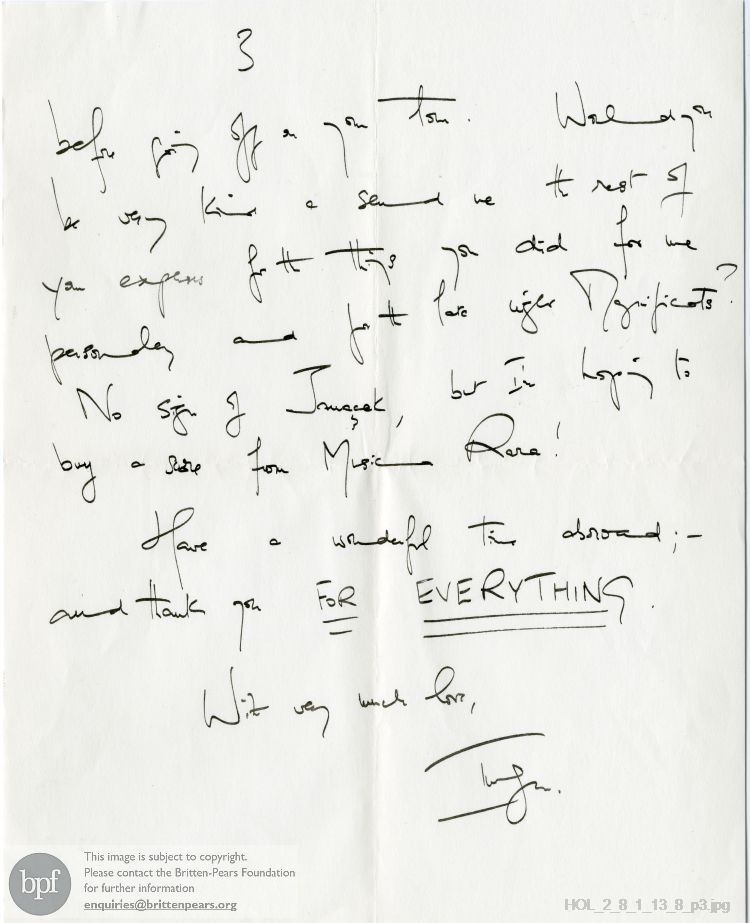 3
before going off on your tour. Would you
be very kind & send me the rest of
your expenses for the things you did for me
personally and for the late night Magnificats?
No sign of Janaçek, but I'm hoping to
buy a score from Musica Rara!
Have a wonderful time abroad; –
and thank you FOR EVERYTHING.
With very much love,
Imogen.
bpf
This image is subject to copyright.
Please contact the Britten-Pears Foundation
for further information
enquiries@brittenpears.org
HOL_2_8_1_13_8_p3.jpg